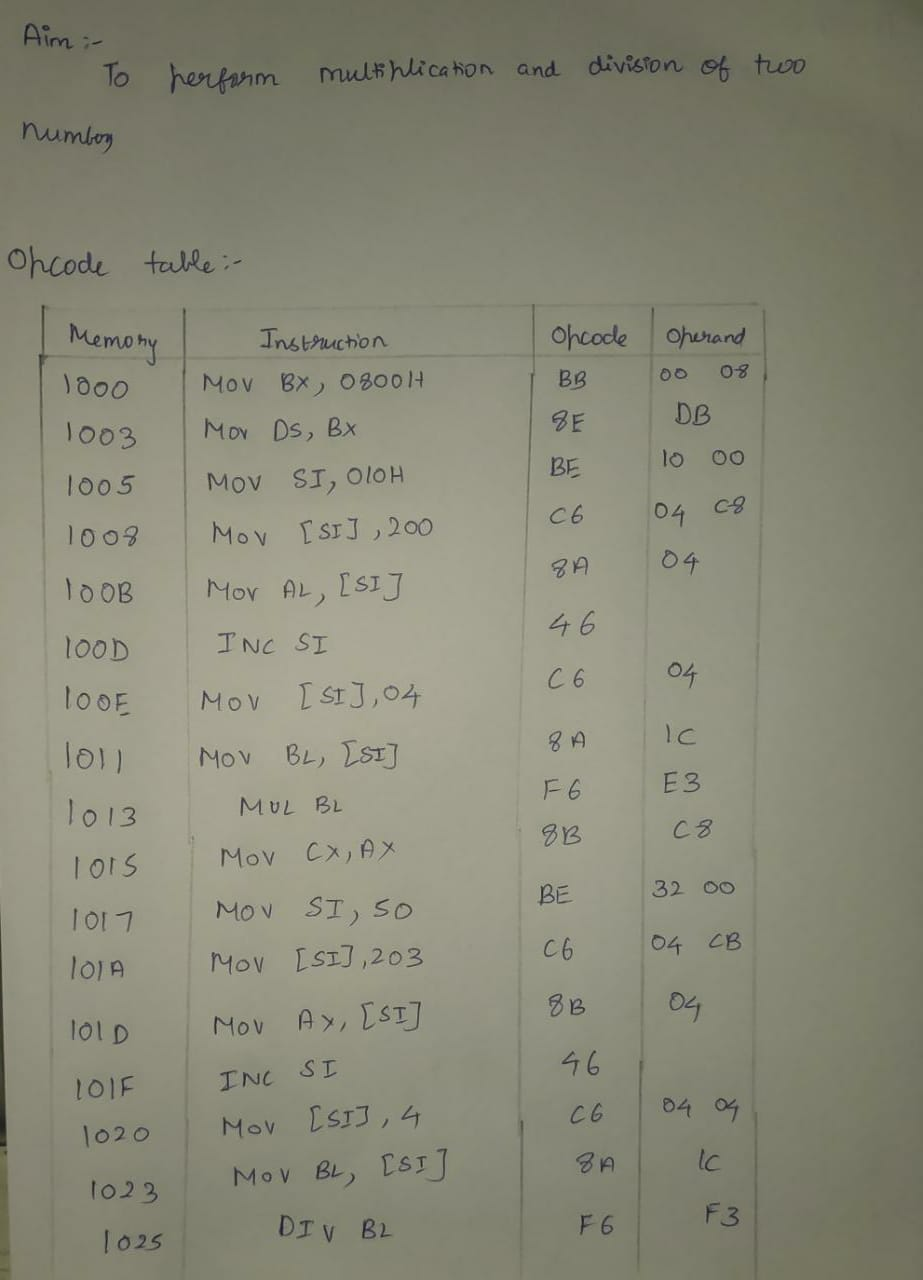 Aim :-
To perform multiplication and division of two
number
Opcode table :-
Memory Instruction Opcode Operand
1000 MOV BX, 0800H BB 00 08
1003 Mov DS, BX 8E DB
1005 MOV SI, 010H BE 10 00
1008 Mov [SI], 200 C6 04 C8
100B Mov AL, [SI] 8A 04
100D INC SI 46
100E MOV [SI], 04 C6 04
1011 MOV BL, [SI] 8A 1C
1013 MUL BL F6 E3
1015 MOV CX, AX 8B C8
1017 MOV SI, 50 BE 32 00
101A MOV [SI], 203 C6 04 CB
101D MOV AX, [SI] 8B 04
101F INC SI 46
1020 MOV [SI], 4 C6 04 04
1023 MOV BL, [SI] 8A 1C
1025 DIV BL F6 F3